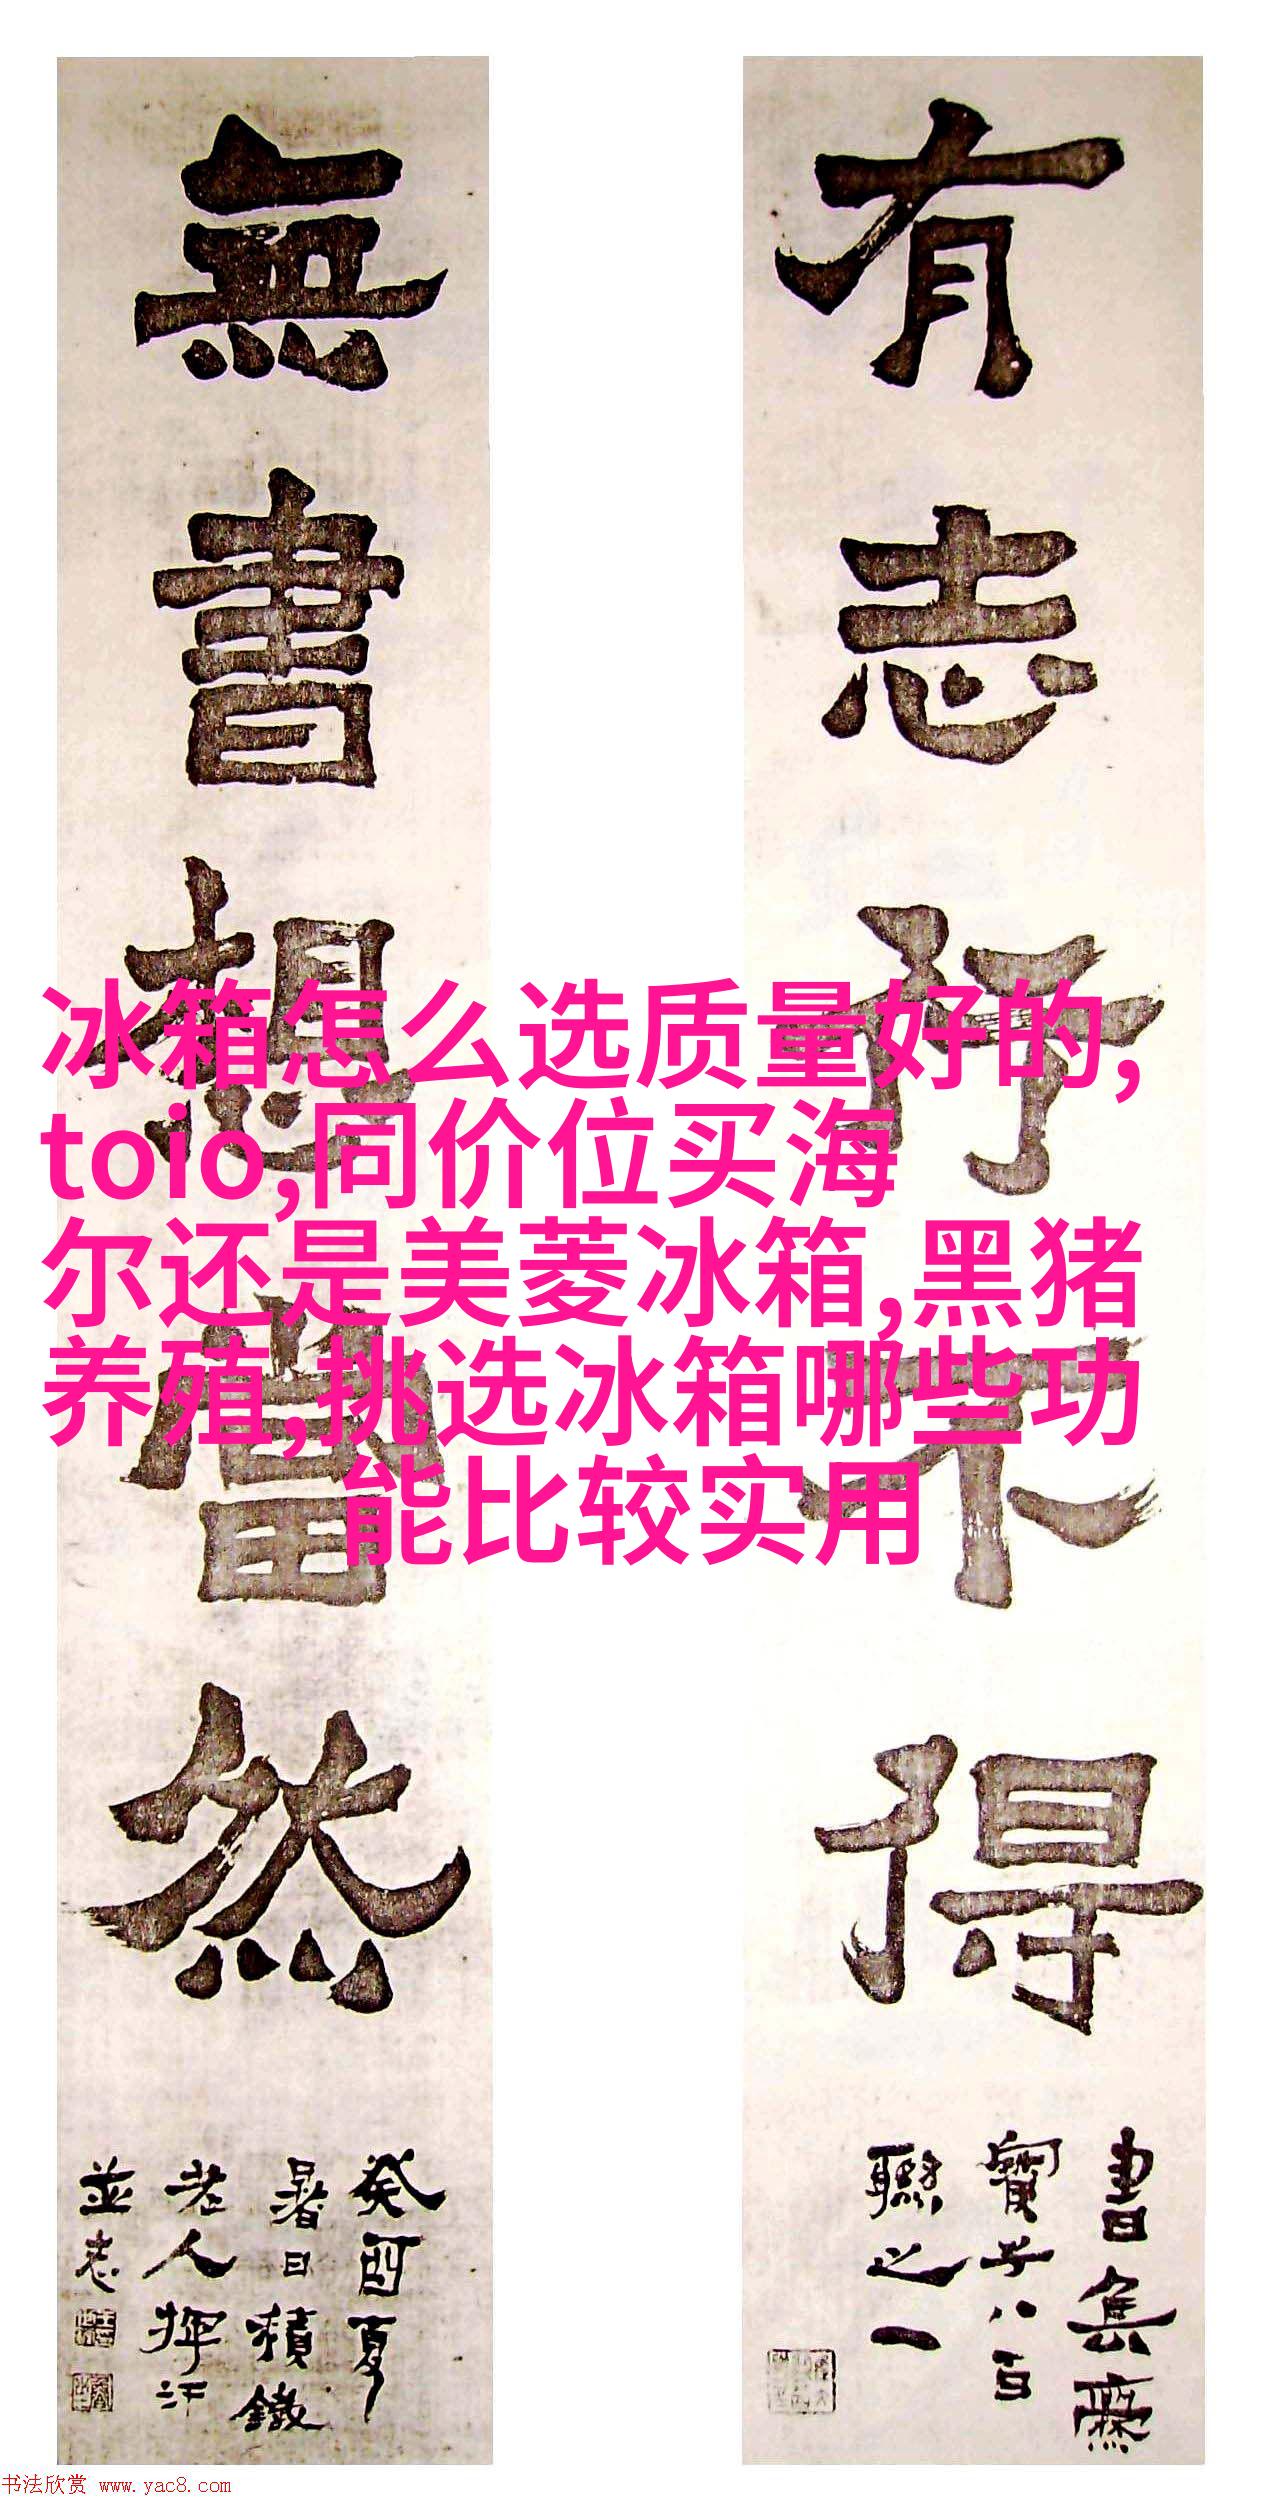 有志行不得
書集齋
寶子八百
聯之一
無書想當然
癸酉夏
暑日積鐵
老人揮汗
並志
冰箱怎么选质量好的,
toio,同价位买海
尔还是美菱冰箱,黑猪
养殖,挑选冰箱哪些功
能比较实用
书法欣赏 www.yac8.com